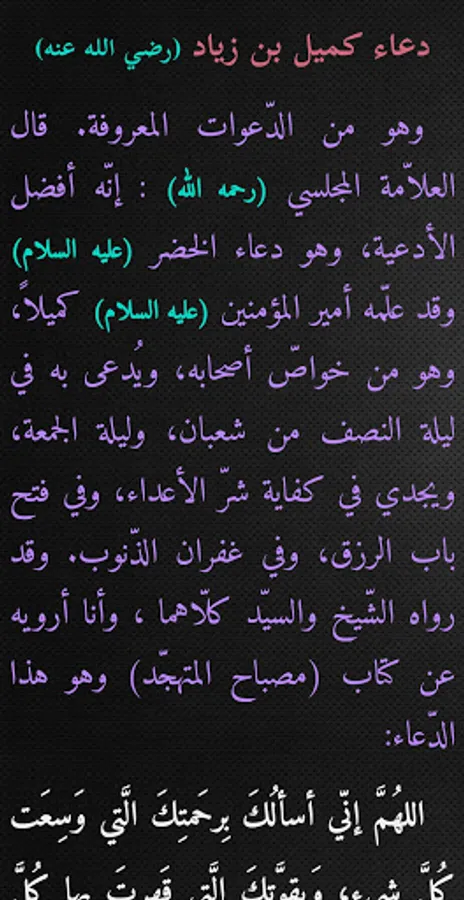 دعاء كميل بن زياد (رضي الله عنه)
وهو من الدّعوات المعروفة. قال
العلاّمة المجلسي (رحمه الله) : إنّه أفضل
الأدعية، وهو دعاء الخضر (عليه السلام)
وقد علّمه أمير المؤمنين (عليه السلام) كميلاً،
وهو من خواصّ أصحابه، ويُدعى به في
ليلة النصف من شعبان، وليلة الجمعة،
ويجدي في كفاية شرّ الأعداء، وفي فتح
باب الرزق، وفي غفران الذّنوب. وقد
رواه الشّيخ والسيّد كلّاهما ، وأنا أرويه
عن كتاب (مصباح المتهجّد) وهو هذا
الدّعاء:
اللهُمَّ إنّي أسألُكَ بِرحَمتِكَ الَّتي وَسِعَت
كُلَّ شيءٍ، وَبِقوَّتِكَ الَّتي قَهرتَ بِها كُلَّ